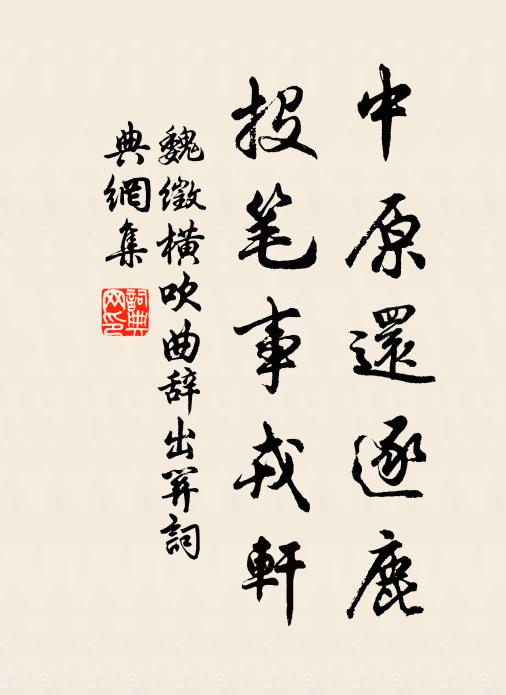 中原還逐鹿
投笔事戎軒
魏徵横吹曲辞出関詞
典網集
詞典网印